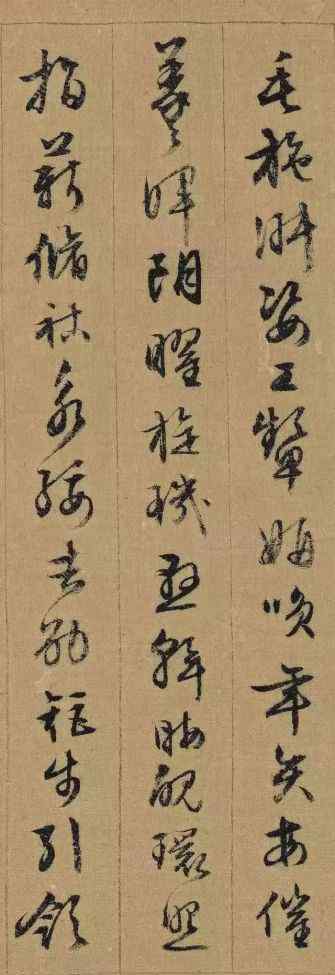 毛施淑姿工顰妍笑年矢每催
羲暉朗曜旋璣懸斡晦魄環照
指薪脩祜永綏吉劭矩步引領